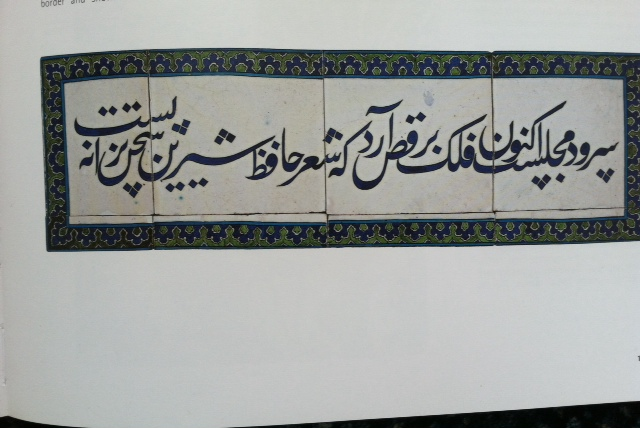 border and
سرود مجلست اکنون فلک برقص آرد که شعر حافظ شیرین سخن ترانه تست